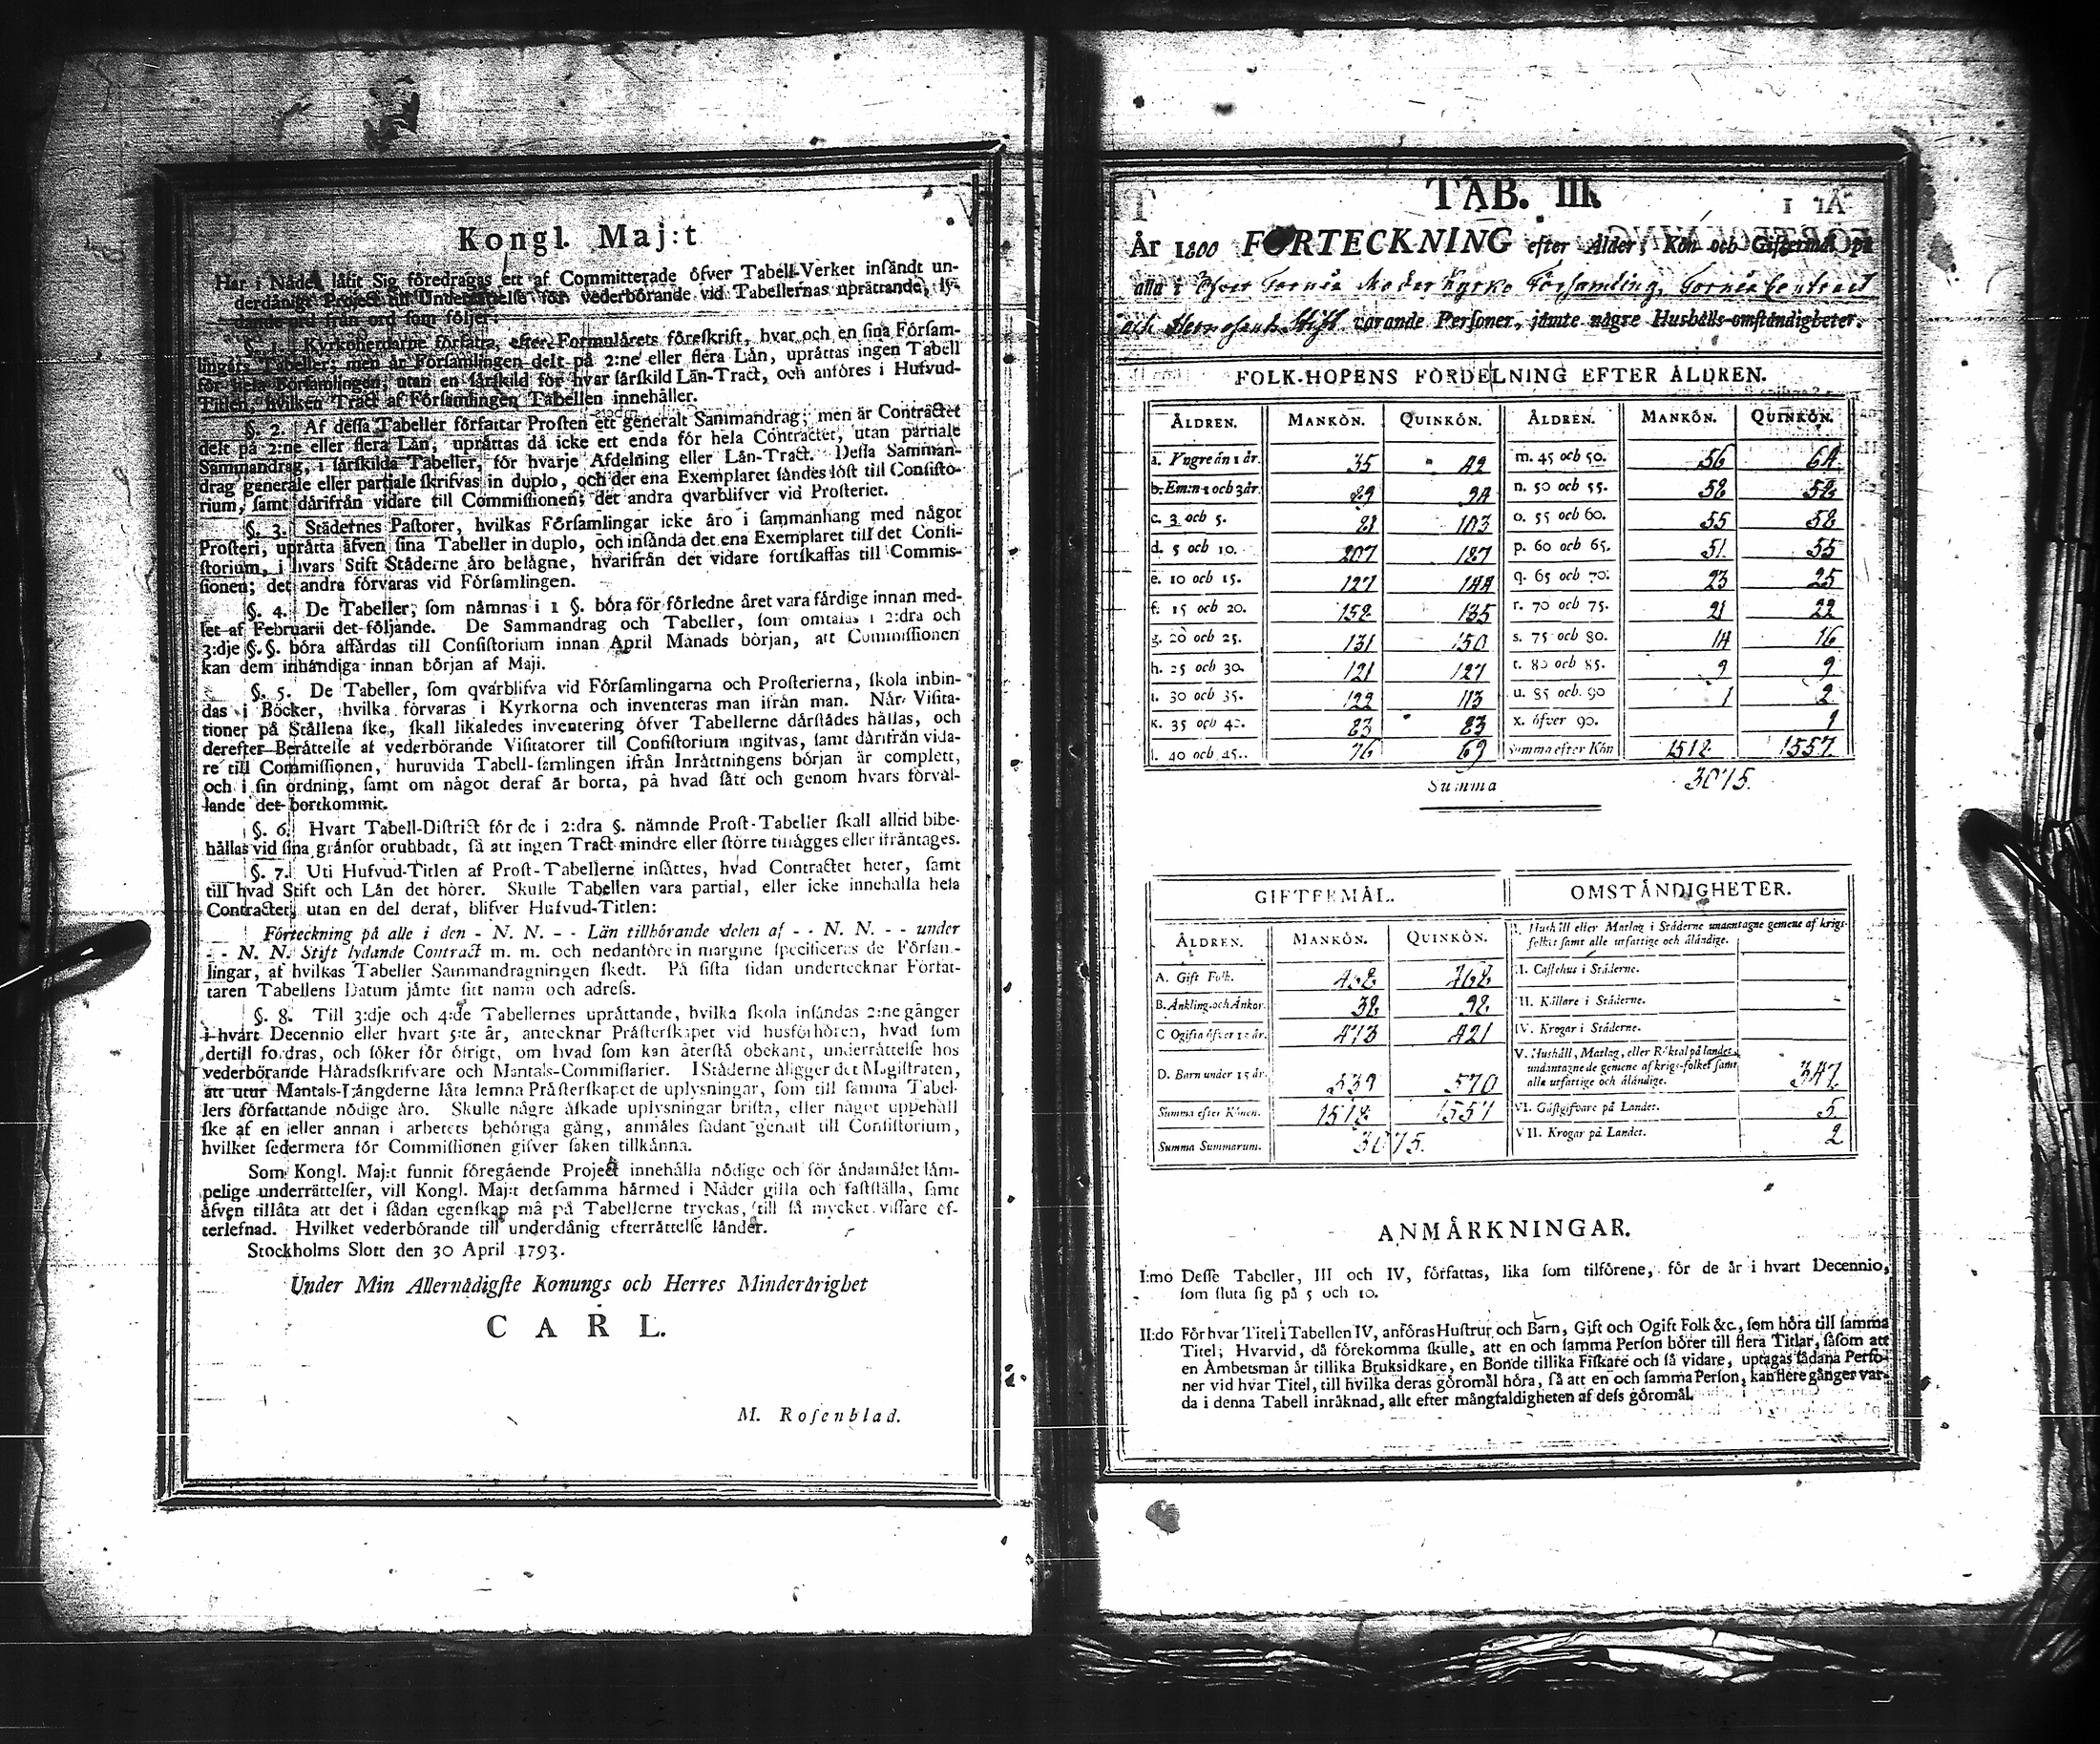 Kongl. Maj:t
Har i Nåder låtit Sig föredragas ett af Committerade öfver Tabell-Verket insändt un-
derdånigt Project till Underrättelse för vederbörande vid Tabellernas uprättande, ly-
dande ord från ord som följer:
§. 1. Kyrkoherdarne författa, efter Formulärets föreskrift, hvar och en sina Försam-
lingars Tabeller; men är Församlingen delt på 2:ne eller flera Län, uprättas ingen Tabell
för hela Församlingen, utan en särskild för hvar särskild Län-Tract, och anföres i Hufvud-
Titlen, hvilken Tract af Församlingen Tabellen innehåller.
§. 2. Af dessa Tabeller författar Prosten ett generalt Sammandrag; men är Contractet
delt på 2:ne eller flera Län, uprättas då icke ett enda för hela Contractet, utan partiale
Sammandrag, i särskilda Tabeller, för hvarje Afdelning eller Län-Tract. Dessa Samman-
drag generale eller partiale skrifvas in duplo, och der ena Exemplaret sändes löst till Consisto-
rium, samt därifrån vidare till Commissionen; det andra qvarblifver vid Prosteriet.
§. 3. Städernes Pastorer, hvilkas Församlingar icke äro i sammanhang med något
Prosteri, uprätta äfven sina Tabeller in duplo, och insända det ena Exemplaret till det Consi-
storium, i hvars Stift Städerne äro belägne, hvarifrån det vidare fortskaffas till Commis-
sionen; det andra förvaras vid Församlingen.
§. 4. De Tabeller, som nämnas i 1 §. böra för förledne året vara färdige innan med-
let af Februarii det följande. De Sammandrag och Tabeller, som omtalas i 2:dra och
3:dje §. §. böra affärdas till Consistorium innan April Månads början, att Commissionen
kan dem inhändiga innan början af Maji.
§. 5. De Tabeller, som qvarblifva vid Församlingarna och Prosterierna, skola inbin-
das i Böcker, hvilka förvaras i Kyrkorna och inventeras man ifrån man. När Visita-
tioner på Ställena ske, skall likaledes inventering öfver Tabellerne därstädes hållas, och
derefter Berättelse af vederbörande Visitatorer till Consistorium ingifvas, samt därifrån vida-
re till Commissionen, huruvida Tabell-samlingen ifrån Inrättningens början är complett,
och i sin ordning, samt om något deraf är borta, på hvad sätt och genom hvars förval-
lande det bortkommit.
§. 6. Hvart Tabell-District för de i 2:dra §. nämnde Prost-Tabeller skall alltid bibe-
hållas vid sina gränsor orubbadt, så att ingen Tract mindre eller större tillägges eller ifråntages.
§. 7. Uti Hufvud-Titlen af Prost-Tabellerne insättes, hvad Contractet heter, samt
till hvad Stift och Län det hörer. Skulle Tabellen vara partial, eller icke innehålla hela
Contractet, utan en del deraf, blifver Hufvud-Titlen:
Förteckning på alle i den - N. N. - - Län tillhörande delen af - - N. N. - - under
- - N. N. Stift lydande Contract m. m. och nedanföre in margine specificeras de Försam-
lingar, af hvilkas Tabeller Sammandragningen skedt. På sista sidan undertecknar Förfat-
taren Tabellens Datum jämte sitt namn och adress.
§. 8. Till 3:dje och 4:de Tabellernes uprättande, hvilka skola insändas 2:ne gånger
i hvart Decennio eller hvart 5:te år, antecknar Prästerskapet vid husförhören, hvad som
dertill fordras, och söker för öfrigt, om hvad som kan återstå obekant, underrättelse hos
vederbörande Häradsskrifvare och Mantals-Commissarier. I Städerne åligger det Magistraten,
att utur Mantals-Längderne låta lemna Prästerskapet de uplysningar, som till samma Tabel-
lers författande nödige äro. Skulle några äskade uplysningar brista, eller något uppehåll
ske af en eller annan i arbetets behöriga gång, anmäles sådant genast till Consistorium,
hvilket sedermera för Commissionen gifver saken tillkänna.
Som Kongl. Maj:t funnit föregående Project innehålla nödige och för ändamålet läm-
pelige underrättelser, vill Kongl. Maj:t detsamma härmed i Nåder gilla och fastställa, samt
äfven tillåta att det i sådan egenskap må på Tabellerne tryckas, till så mycket vissare ef-
terlefnad. Hvilket vederbörande till underdånig efterrättelse länder.
Stockholms Slott den 30 April 1793.
Under Min Allernådigste Konungs och Herres Minderårighet
C A R L.
M. Rosenblad.
TAB. III.
År 1800 FÖRTECKNING efter Ålder, Kön och Giftermål på
alla i Öfver Torneå Moder Kyrko Församling, Torneå Contract
och Hernösands Stift varande Personer, jämte några Hushålls-omständigheter.
FOLK-HOPENS FÖRDELNING EFTER ÅLDREN.
ÅLDREN. MANKÖN. QUINKÖN. ÅLDREN. MANKÖN. QUINKÖN.
a. Yngre än 1 år. 35 42 m. 45 och 50. 56 64
b. Em:n 1 och 3 år. 89 94 n. 50 och 55. 58 58
c. 3 och 5. 81 103 o. 55 och 60. 55 58
d. 5 och 10. 207 187 p. 60 och 65. 51 55
e. 10 och 15. 127 144 q. 65 och 70. 23 25
f. 15 och 20. 158 135 r. 70 och 75. 21 22
g. 20 och 25. 131 150 s. 75 och 80. 14 16
h. 25 och 30. 121 127 t. 80 och 85. 9 9
i. 30 och 35. 122 113 u. 85 och 90 1 2
k. 35 och 40. 83 83 x. öfver 90. 1
l. 40 och 45. 76 69 Summa efter Kön 1518 1557
Summa 3075.
GIFTERMÅL. OMSTÄNDIGHETER.
ÅLDREN. MANKÖN. QUINKÖN. I. Hushåll eller Matlag i Städerne undantagne gemene af krigs-
folket samt alle utfattige och åländige.
A. Gift Folk. 468 468 II. Caffehus i Städerne.
B. Änkling. och Änkor. 38 98 III. Källare i Städerne.
C Ogifta öfver 15 år. 473 421 IV. Krogar i Städerne.
D. Barn under 15 år. 539 570 V. Hushåll, Matlag, eller Röktal på landet,
undantagne de gemene af krigs-folket samt
alle utfattige och åländige. 347.
Summa efter Könen. 1518 1557 VI. Gästgifvare på Landet. 5
Summa Summarum. 3075. VII. Krogar på Landet. 2
ANMÄRKNINGAR.
I:mo Desse Tabeller, III och IV, författas, lika som tilförene, för de år i hvart Decennio,
som sluta sig på 5 och 10.
II:do För hvar Titel i Tabellen IV, anföras Hustrur och Barn, Gift och Ogift Folk &c., som höra till samma
Titel; Hvarvid, då förekomma skulle, att en och samma Person hörer till flera Titlar, såsom att
en Ämbetsman är tillika Bruksidkare, en Bonde tillika Fiskare och så vidare, uptagas sådana Perso-
ner vid hvar Titel, till hvilka deras göromål höra, så att en och samma Person, kan flere gånger var-
da i denna Tabell inräknad, allt efter mångfaldigheten af dess göromål.